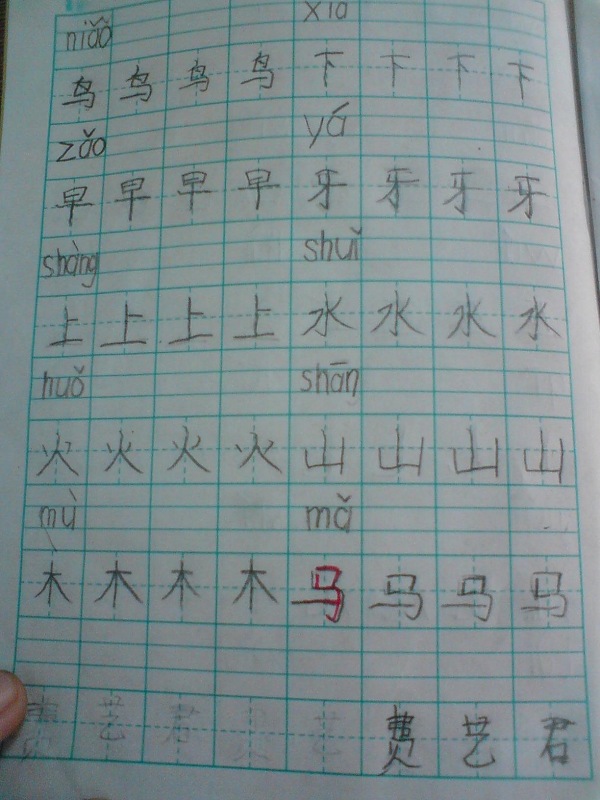 niǎo xià
鸟 鸟 鸟 鸟 下 下 下 下
zǎo yá
早 早 早 早 牙 牙 牙 牙
shàng shuǐ
上 上 上 上 水 水 水 水
huǒ shān
火 火 火 火 山 山 山 山
mù mǎ
木 木 木 木 马 马 马 马
费 艺 君 费 艺 君